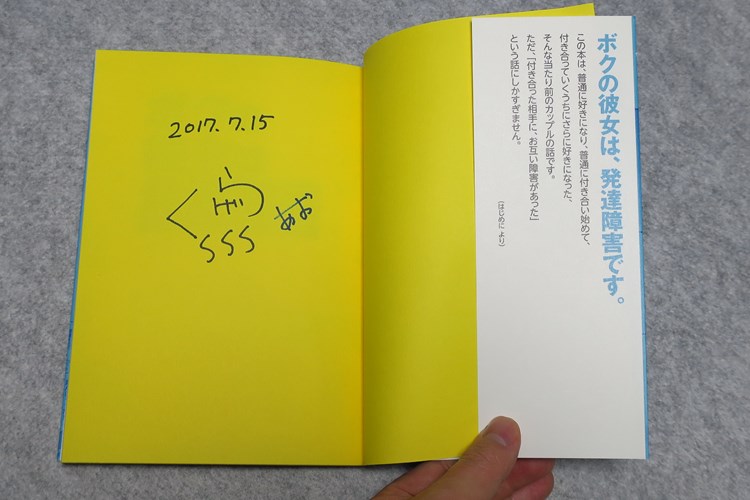 2017.7.15
くらげ
SSS
あお
ボクの彼女は、発達障害です。
この本は、普通に好きになり、普通に付き合い始めて、
付き合っていくうちにさらに好きになった、
そんな当たり前のカップルの話です。
ただ、「付き合った相手に、お互い障害があった」
という話にしかすぎません。
(はじめに より)